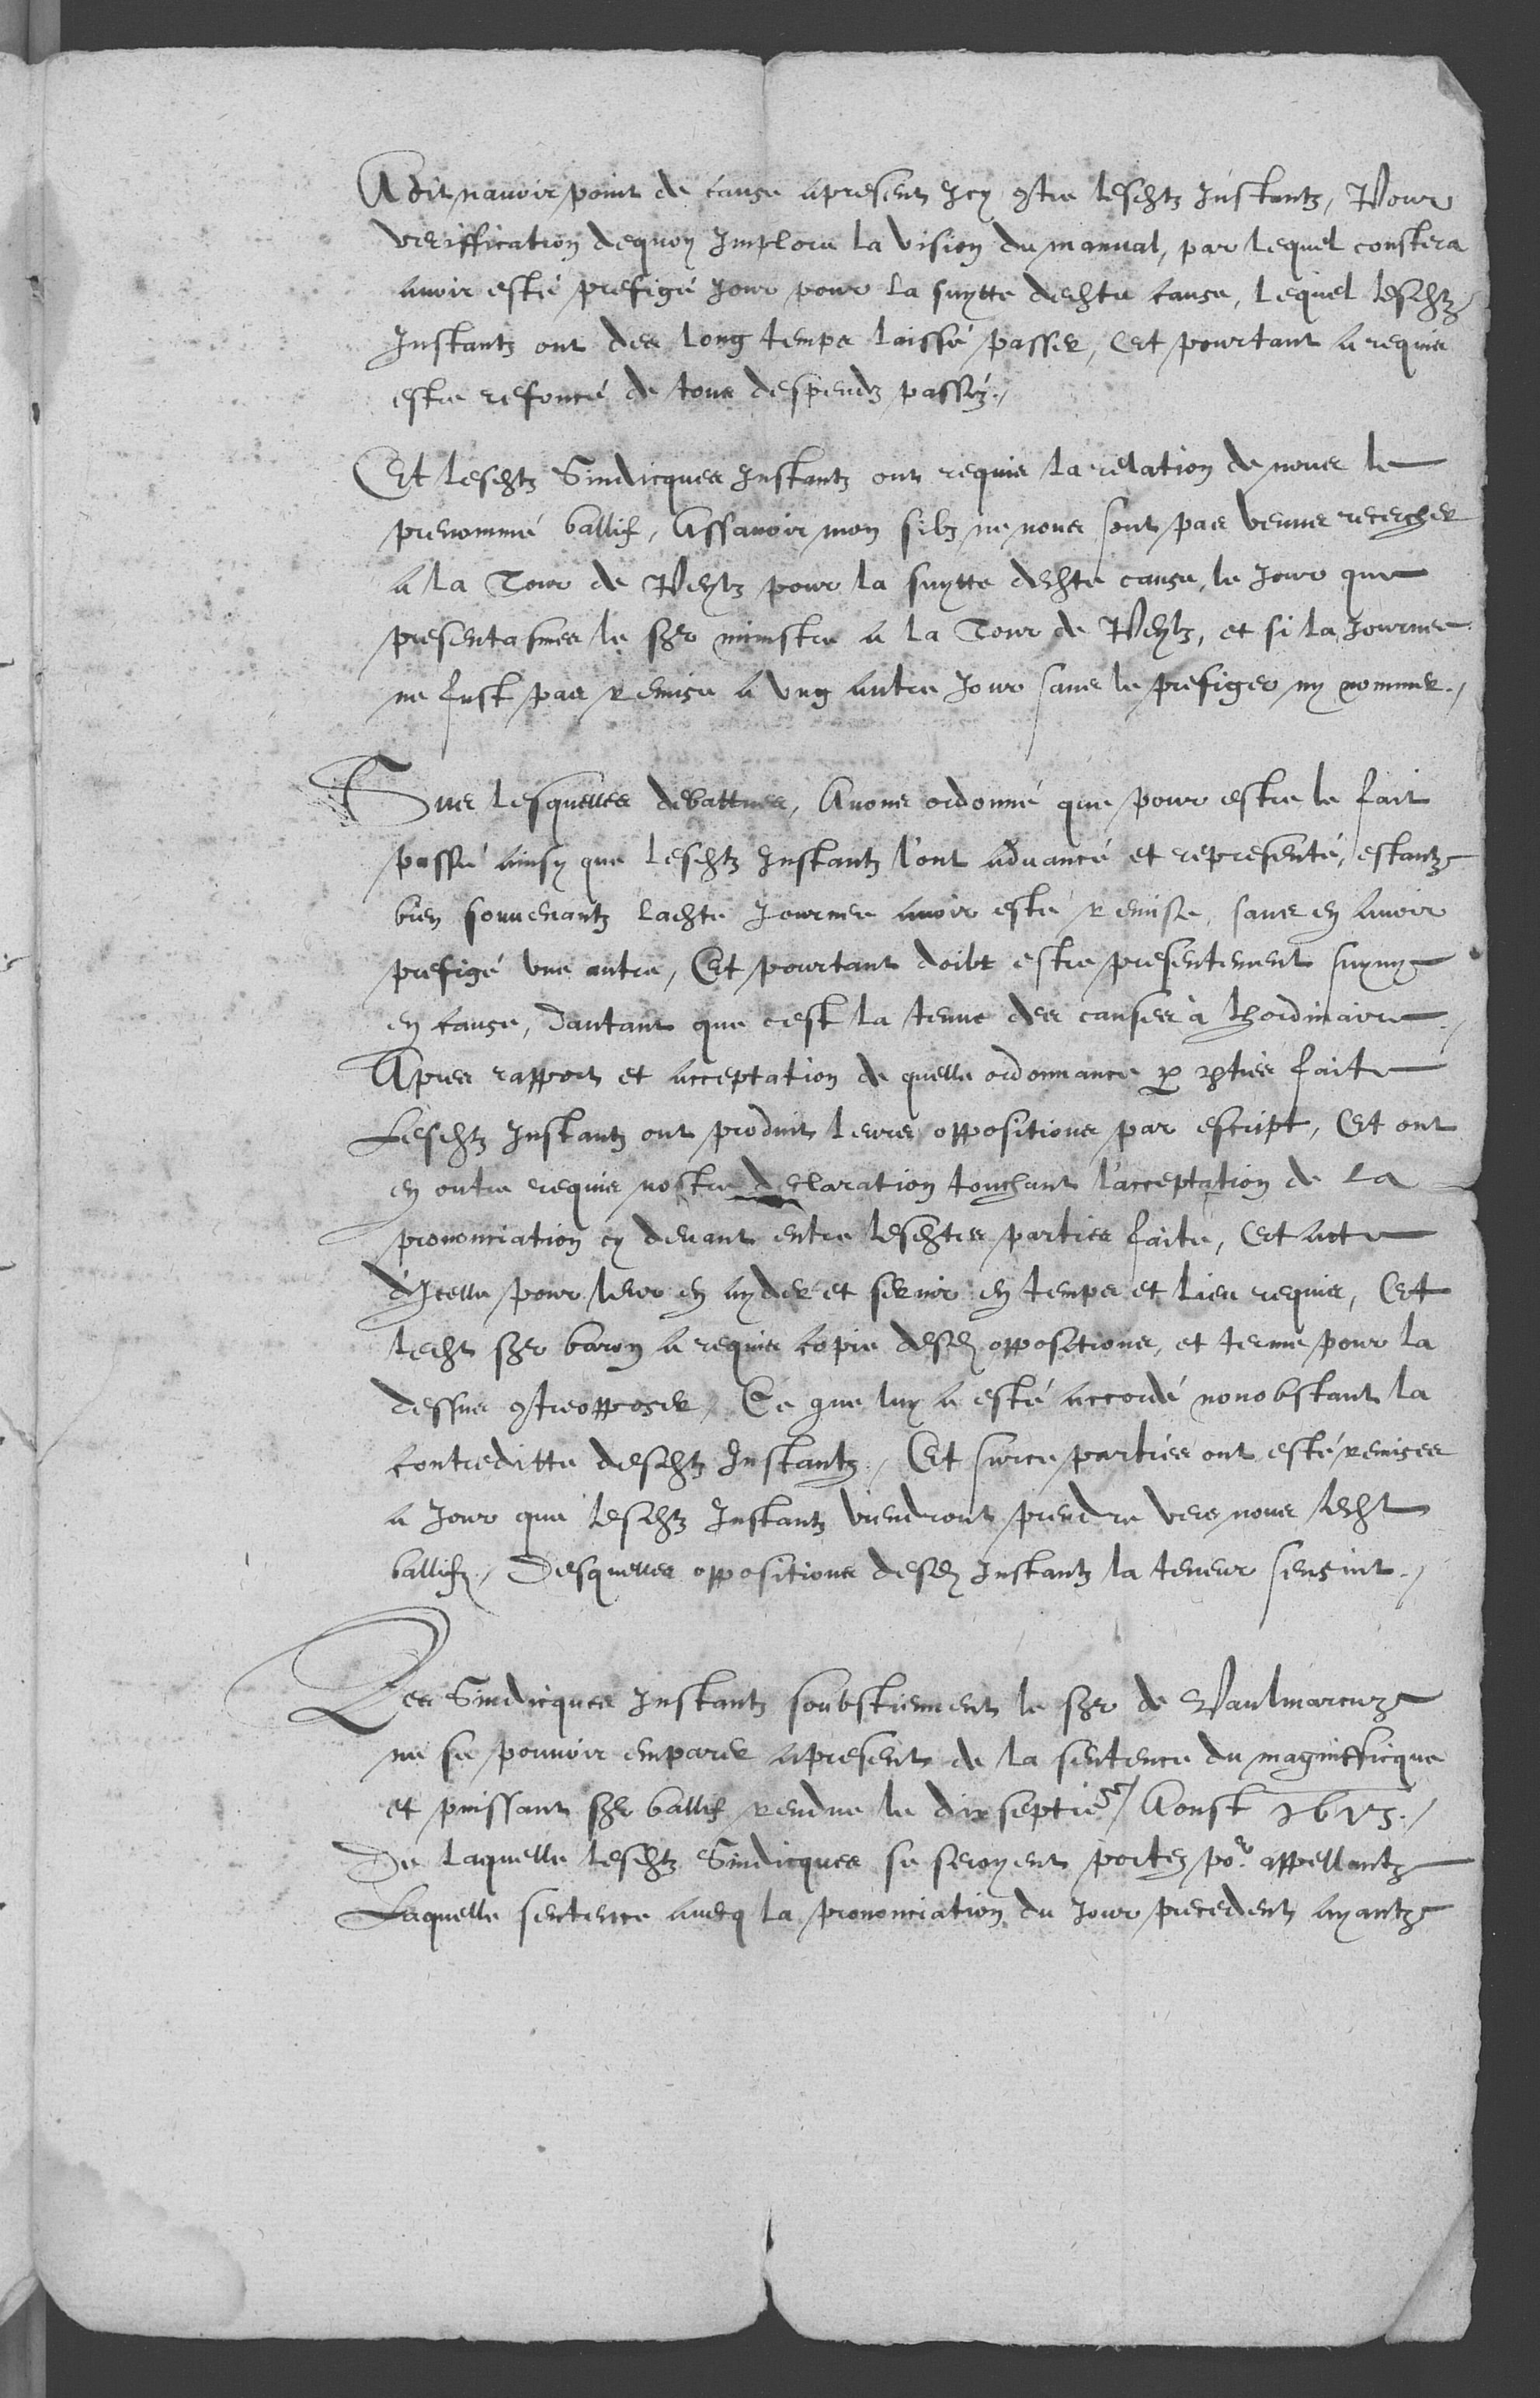 A dit n'avoir point de cause apresent Icy 9tre lesdtz Instantz, Pour
veriffication dequoy Implore la vision du manual, par lequel constera
avoir esté prefigé Jour pour la suytte dedte cause, lequel lesdtz
Instantz ont des long temps laissé passer, Et pourtant a requis
estre refoncé de tous despendz passéz./
Et lesdtz Sindicques Instantz ont requis la relation de nous le
prenommé ballif, Assavoir mon silz ne nous sont pas venus recercher
a la Tour de Peylz pour la suytte dedte cause, le Jour que
presentasmes le sgr ministre a la Tour de Peylz, et si la Journee
ne fust pas remise a ung autre Jour sans le prefiger ny nommer./
Sus lesquelles debattues, Avons ordonné que pour estre le fait
passé ainsy que lesdtz Instantz l'ont advancé et representé, estantz
bien souvenantz ladte Journee avoir esté remise, sans en avoir
prefigé une autre, Et pourtant doibt estre presentement suyvy
en cause, dautant que cest la tenue des causes à lordinaire./
Apres rapport et acceptation de quelle ordonnance p pties faite
Lesdtz Instantz ont produit leurs oppositions par escript, Et ont
en outre requis nostre declaration touchant l'acceptation de la
prononciation cy devant entre lesdtes parties faite, Et acte
d'Icelle pour leur en ayder et servir en temps et lieu requis, Et
ledt sgr baron a requis copie desd oppositions, et terme pour la
dessus 9treopposer, Ce que luy a esté accordé nonobstant la
contreditte desdtz Instantz, Et surce parties ont esté remises
a Jour que lesdtz Instantz viendront prendre vers nous ledt
ballif, Desquelles oppositions desd Instantz la teneur sensuit./
Les Sindicques Instantz soubstiennent le sgr de Vaulmarcuz
ne se pouvoir emparer apresent de la sentence du magnifficque
et puissant sgr ballif rendue le dix septie me Aoust
De laquelle lesdtz Sindicques se seroyent portez por appellantz
Laquelle sentence avecq la prononciation du Jour precedent ayantz